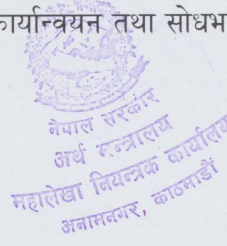 कार्यान्वयन तथा सोधभ
नेपाल सरकार
अर्थ मन्त्रालय
महालेखा नियन्त्रक कार्यालय
अनामनगर, काठमाडौं